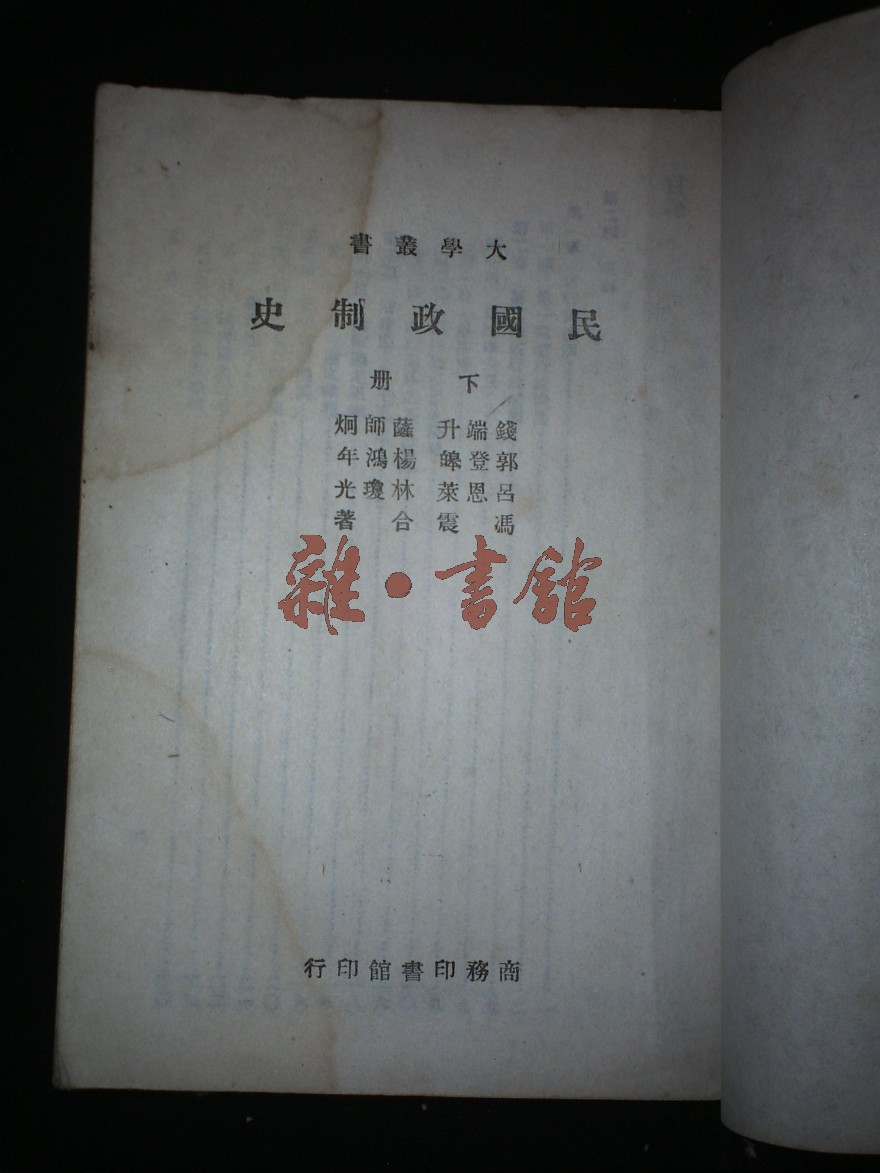 大學叢書
民國政制史
下册
錢端升 薩師炯
郭登皞 楊鴻年
呂恩萊 林瓊光
馮震 合著
雜·書館
商務印書館印行